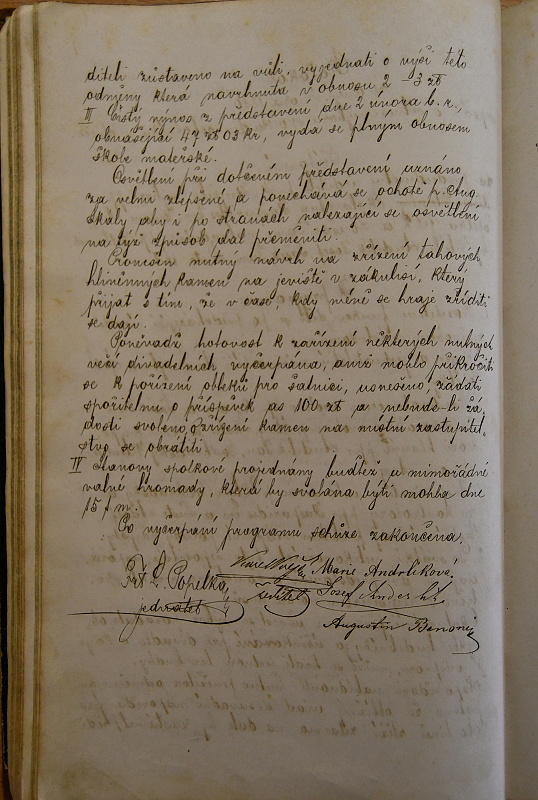 diteli zůstaveno na vůli, vyjednati o výši této
odměny která navrhnuta v obnosu 2 – 3 zł
III Čistý výnos z představení dne 2 února b. r.,
obnášející 47 zł 03 kr, vydá se plným obnosem
škole mateřské.
Osvětlení při dotčeném představení uznáno
za velmi zlepšené a ponechává se ochotě p. Aug.
Skály aby i po stranách nalezající se osvětlení
na týž způsob dal přeměniti.
Pronešen nutný návrh na zřízení tahových
hliněnných kamen na jeviště v zákulisí, který
přijat s tím, že v čase, kdy méně se hraje zříditi
se dají.
Poněvadž hotovost k zařízení některých nutných
věcí divadelních vyčerpána, aniž mohlo přikročiti
se k pořízení obleků pro šatnici, usneseno žádati
spořitelnu o příspěvek as 100 zł a nebude-li žá
dosti svoleno, o zřízení kamen na místní zastupitel-
stvo se obrátiti.
IV Stanovy spolkové projednány buďtež u mimořádné
valné hromady, která by svolána býti mohla dne
15 t m.
Po vyčerpání programu schůze zakončena.
Marie Andrlíková.
Frt. L. Popelka
jednatel
ředitel
Josef
Augustin